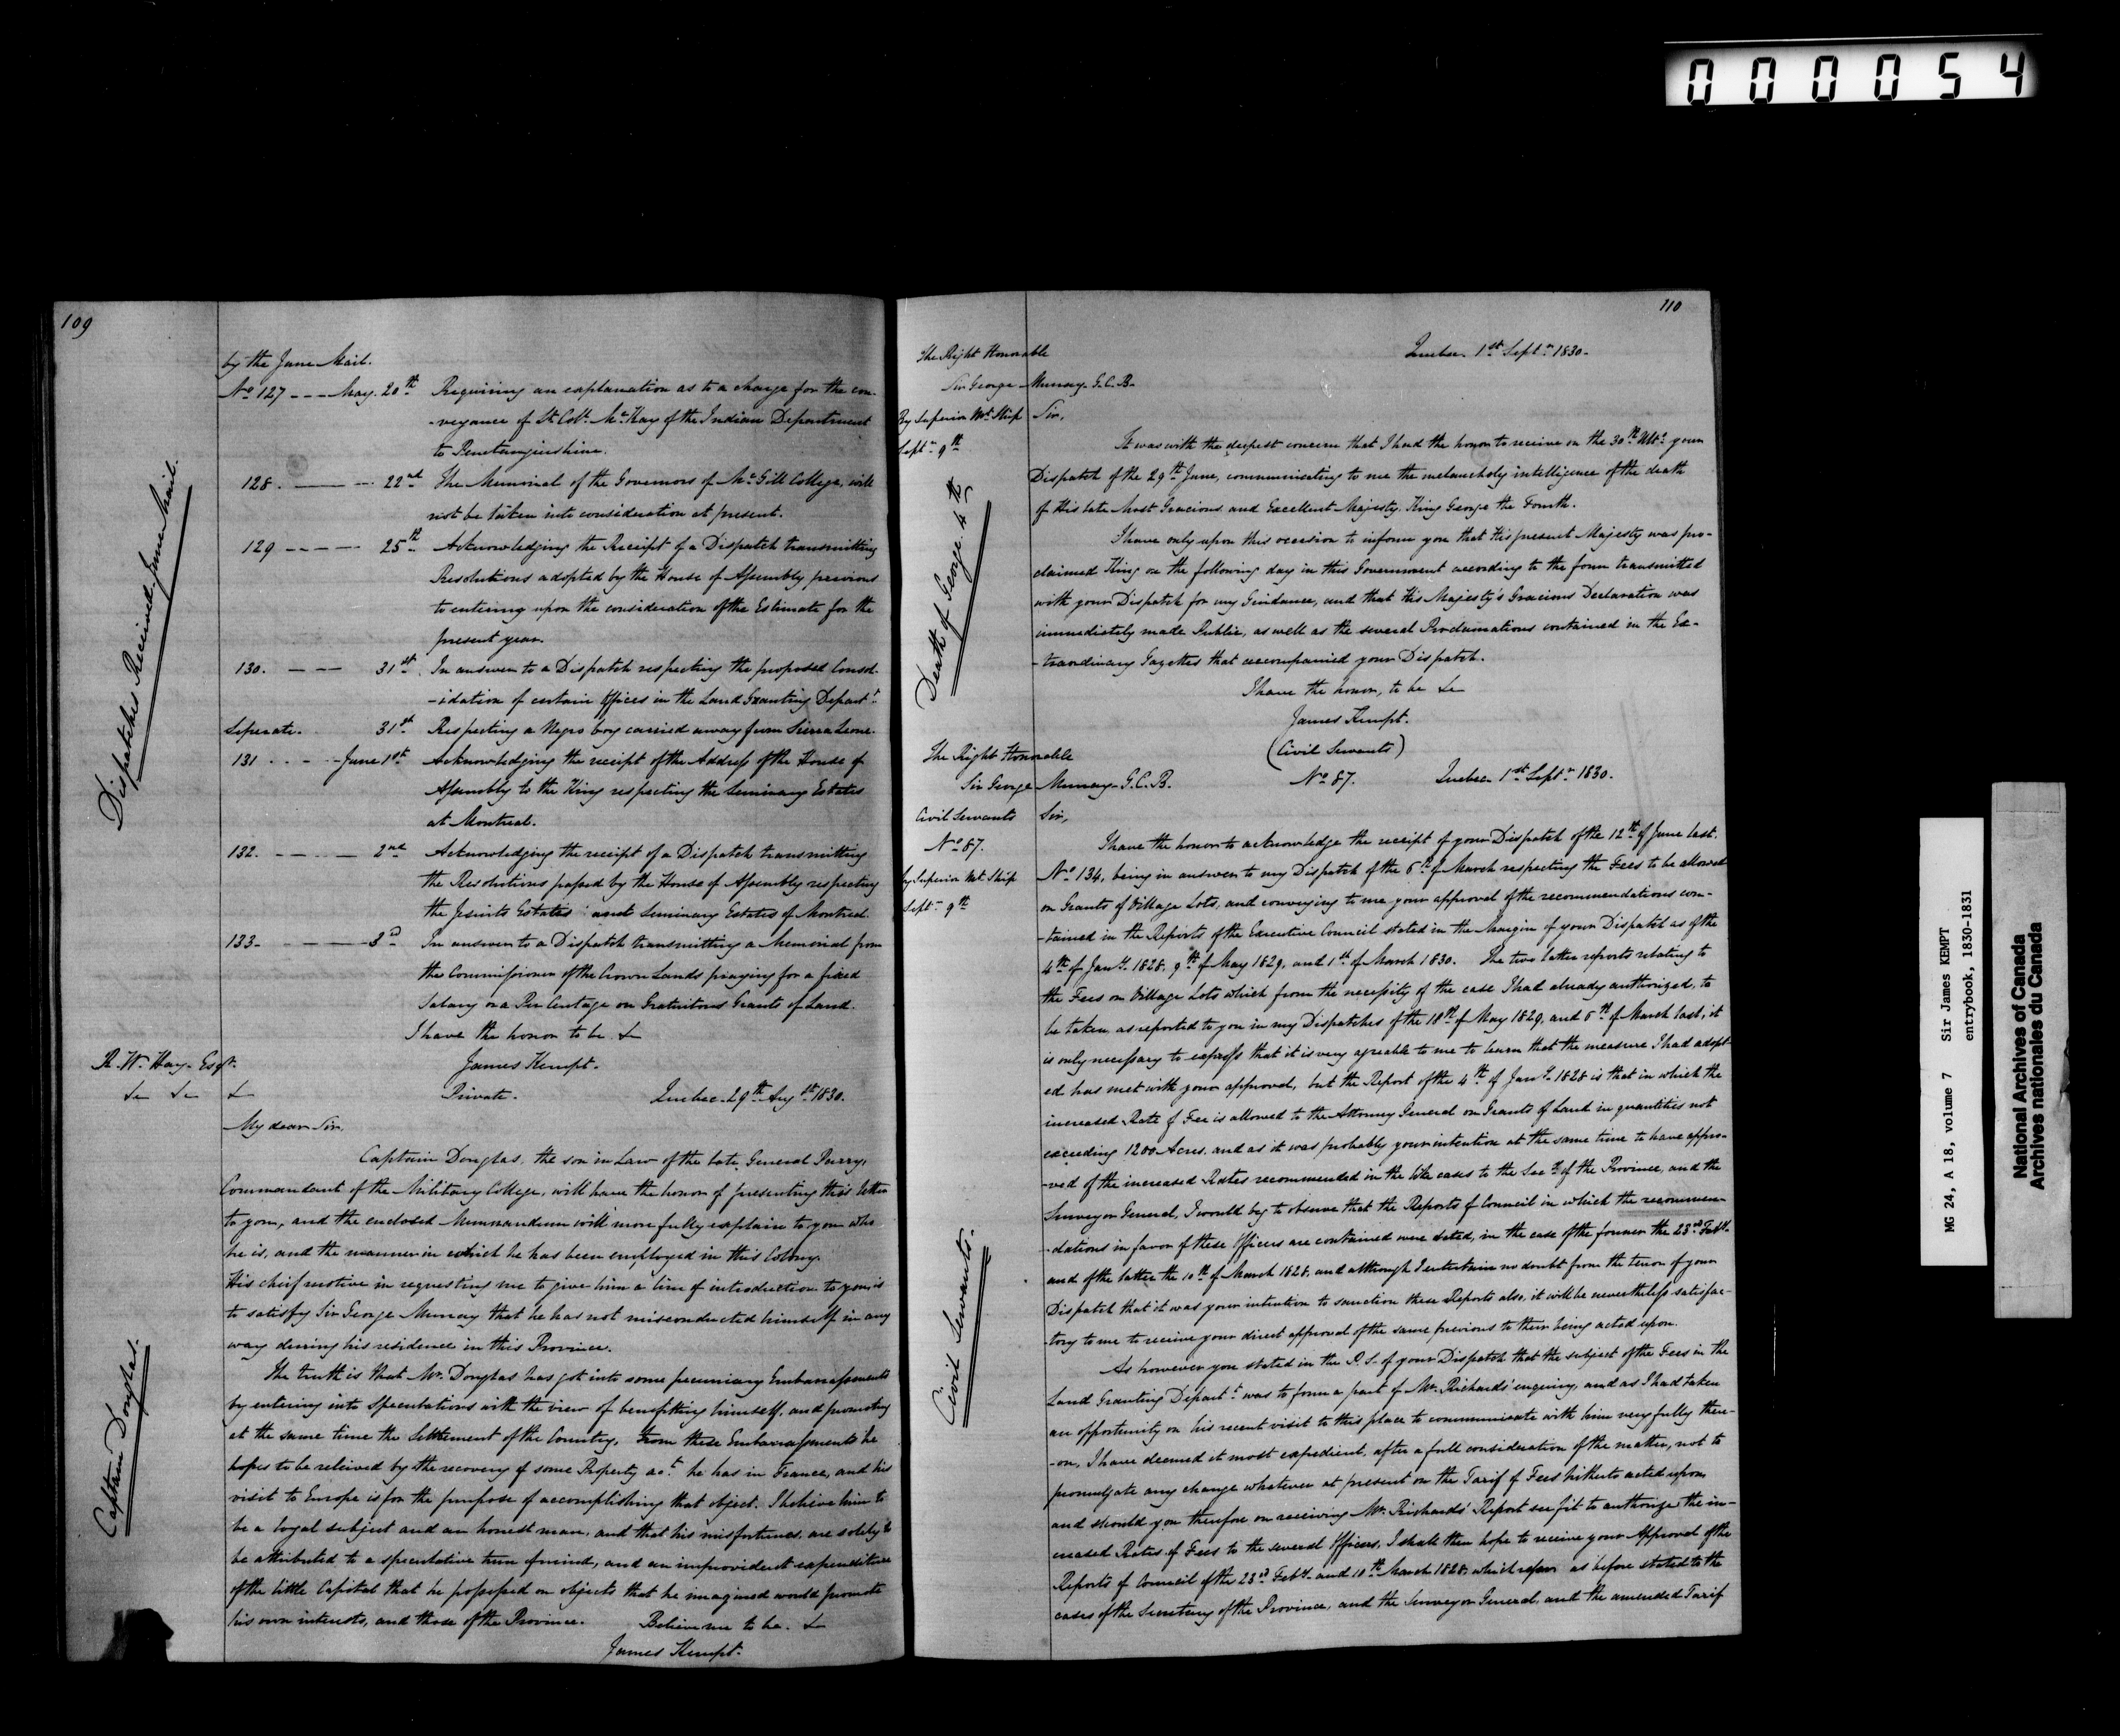 000054
109
by the June Mail.
No 127 --- May. 20th Requiring an explanation as to a charge for the con-
-veyance of Lt. Col. McKay of the Indian Department
to Penetanguishine.
128. ---- 22nd The Memorial of the Governors of McGill College, will
not be taken into consideration at present.
129 ---- 25th Acknowledging the Receipt of a Dispatch transmitting
Resolutions adopted by the House of Assembly previous
to entering upon the consideration of the Estimate for the
present year.
130. --- 31st. In answer to a Dispatch respecting the proposed Consol-
-idation of certain Offices in the Land Granting Departt.
Seperate. 31st Respecting a Negro boy carried away from Sierra Leone.
131 ... - June 1st. Acknowledging the receipt of the Address of the House of
Assembly to the King respecting the Seminary Estates
at Montreal.
132. ---- 2nd Acknowledging the receipt of a Dispatch transmitting
the Resolutions passed by the House of Assembly respecting
the Jesuits Estates and Seminary Estates of Montreal.
133- ---- 3d In answer to a Dispatch transmitting a Memorial from
the Commissioner of the Crown Lands praying for a fixed
Salary or a Per Centage on Gratuitous Grants of Land.
I have the honor to be &c
James Kempt.
Dispatches Received June Mail.
R. W. Hay. Esqr.
&c &c &c Private. Quebec. 29th Augst. 1830.
My dear Sir,
Captain Douglas, the son in Law of the late General Parry,
Commandant of the Military College, will have the honor of presenting this letter
to you, and the enclosed Memorandum will more fully explain to you who
he is, and the manner in which he has been employed in this Colony.
His chief motive in requesting me to give him a line of introduction to you is
to satisfy Sir George Murray that he has not misconducted himself in any
way during his residence in this Province.
The truth is that Mr. Douglas has got into some pecuniary Embarrassments
by entering into Speculations with the view of benefitting himself, and promoting
at the same time the Settlement of the Country. From these Embarrassments he
hopes to be releived by the recovery of some Property &c. he has in France, and his
visit to Europe is for the purpose of accomplishing that object. I believe him to
be a loyal subject and an honest man, and that his misfortunes are solely to
be attributed to a speculative turn of mind, and an improvident expenditure
of the little Capital that he possessed on objects that he imagined would promote
his own interests, and those of the Province. Believe me to be. &c
James Kempt.
Captain Douglas.
110
Quebec. 1st Septr. 1830-
The Right Honorable
Sir George Murray. G.C.B.
By Superior Mt. Ship
Septr. 9th
Sir,
It was with the deepest concern that I had the honor to receive on the 30th Ulto. your
Dispatch of the 29th June, communicating to me the melancholy intelligence of the death
of His late Most Gracious and Excellent Majesty, King George the Fourth.
I have only upon this occasion to inform you that His present Majesty was pro-
claimed King on the following day in this Government according to the form transmitted
with your Dispatch for my Guidance, and that His Majesty's Gracious Declaration was
immediately made Public, as well as the several Proclamations contained in the Ex-
-traordinary Gazettes that accompanied your Dispatch.
I have the honor, to be &c
James Kempt.
Death of George 4th
(Civil Servants)
The Right Honorable
Sir George Murray. G.C.B. No. 87. Quebec 1st Septr. 1830.
Civil Servants
No. 87.
by Superior Mt. Ship
Septr. 9th
Sir,
I have the honor to acknowledge the receipt of your Dispatch of the 12th of June last.
No. 134, being in answer to my Dispatch of the 6th of March respecting the Fees to be allowed
on Grants of Village Lots, and conveying to me your approval of the recommendations con-
-tained in the Reports of the Executive Council stated in the Margin of your Dispatch as of the
4th of Jany. 1828, 9th of May 1829, and 1st of March 1830. The two latter reports relating to
the Fees on Village Lots which from the necessity of the case I had already authorized, to
be taken, as reported to you in my Dispatches of the 18th of May 1829, and 6th of March last, it
is only necessary to express that it is very agreable to me to learn that the measure I had adopt-
ed has met with your approval, but the Report of the 4th of Jany. 1828 is that in which the
increased Rate of Fee is allowed to the Attorney General on Grants of Land in quantities not
exceeding 1200 Acres, and as it was probably your intention at the same time to have appro-
-ved of the increased Rates recommended in the like cases to the Secy. of the Province, and the
Surveyor General, I would beg to observe that the Reports of Council in which the recommen-
-dations in favor of these Officers are contained were dated, in the case of the former the 23rd Feby.
and of the latter the 10th of March 1828, and although I entertain no doubt from the tenor of your
Dispatch that it was your intention to sanction these Reports also, it will be nevertheless satisfac-
-tory to me to receive your direct approval of the same previous to their being acted upon.
As however you stated in the P.S. of your Dispatch that the subject of the Fees in the
Land Granting Departt. was to form a part of Mr. Richards' enquiry, and as I had taken
an opportunity on his recent visit to this place to communicate with him very fully there-
-on, I have deemed it most expedient, after a full consideration of the matter, not to
promulgate any change whatever at present on the Tarif of Fees hitherto acted upon,
and should you therefore on receiving Mr. Richards' Report see fit to authorize the in-
creased Rates of Fees to the several Officers, I shall then hope to receive your Approval of the
Reports of Council of the 23rd Feby. and 10th March 1828, which refer as before stated to the
cases of the Secretary of the Province, and the Surveyor General, and the amended Tarif
Civil Servants.
MG 24, A 18, volume 7 Sir James KEMPT
entrybook, 1830-1831
National Archives of Canada
Archives nationales du Canada